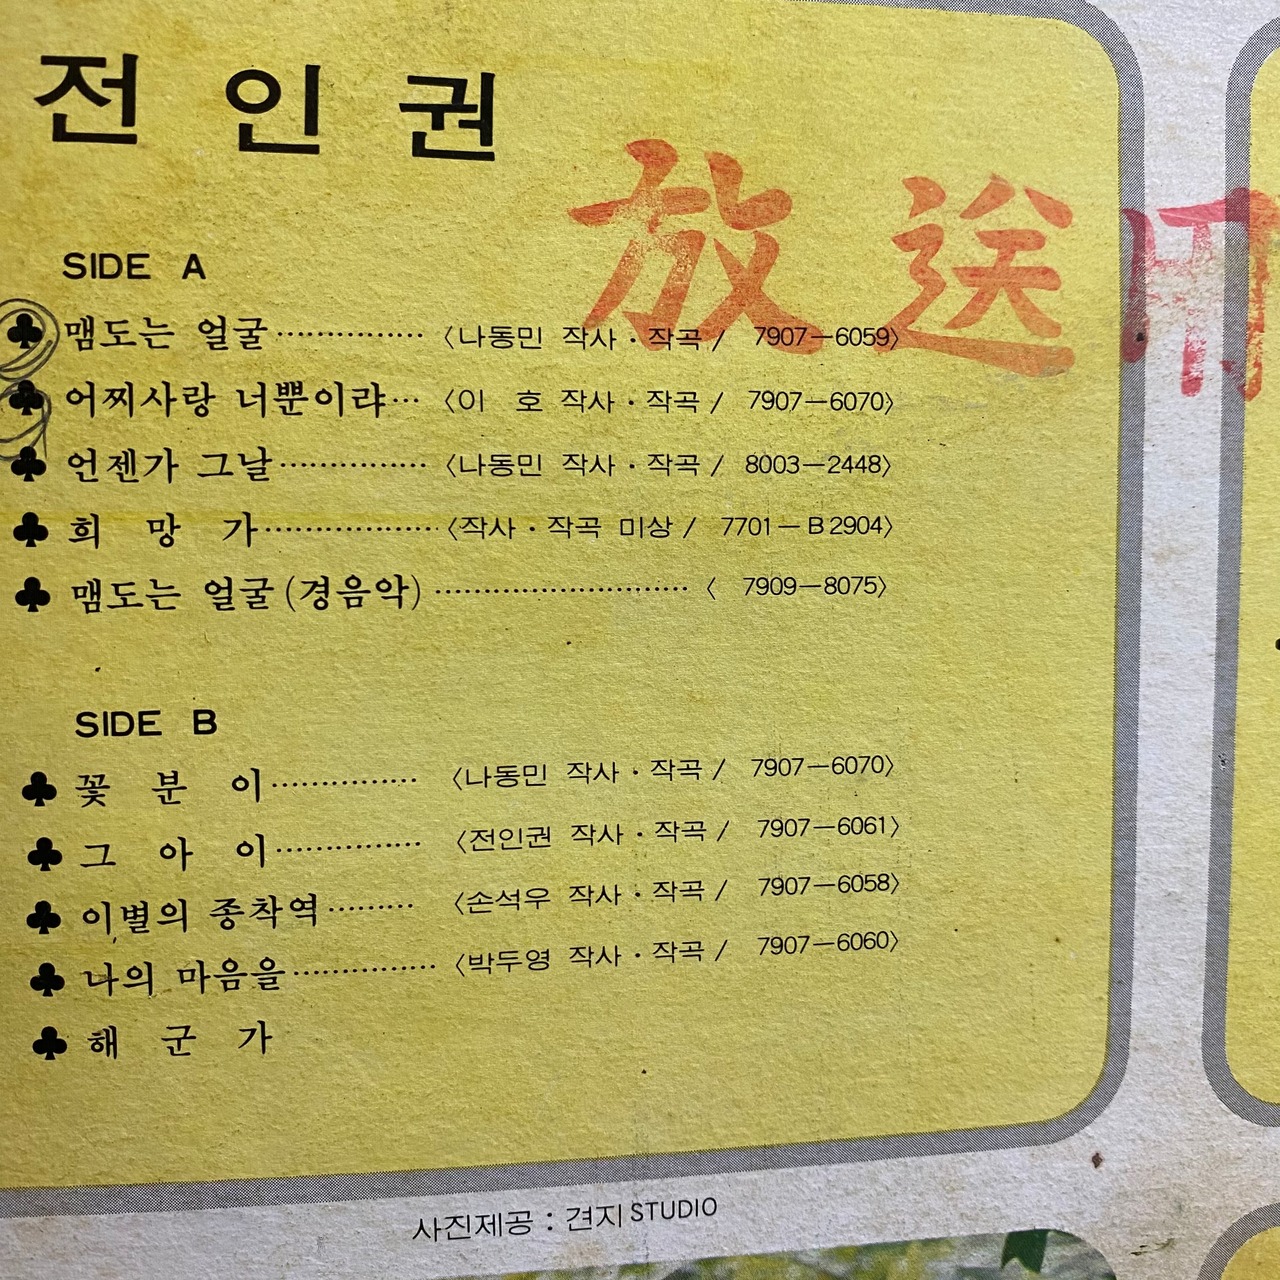 전 인 권
放送用
SIDE A
♣ 맴도는 얼굴 ··············· 〈나동민 작사 · 작곡 / 7907—6059〉
♣ 어찌사랑 너뿐이랴 ··· 〈이 호 작사 · 작곡 / 7907—6070〉
♣ 언젠가 그날 ··············· 〈나동민 작사 · 작곡 / 8003—2448〉
♣ 희 망 가 ·················· 〈작사 · 작곡 미상 / 7701—B2904〉
♣ 맴도는 얼굴 (경음악) ·························· 〈 7909—8075〉
SIDE B
♣ 꽃 분 이 ··············· 〈나동민 작사 · 작곡 / 7907—6070〉
♣ 그 아 이 ··············· 〈전인권 작사 · 작곡 / 7907—6061〉
♣ 이별의 종착역 ········· 〈손석우 작사 · 작곡 / 7907—6058〉
♣ 나의 마음을 ··············· 〈박두영 작사 · 작곡 / 7907—6060〉
♣ 해 군 가
사진제공 : 견지 STUDIO